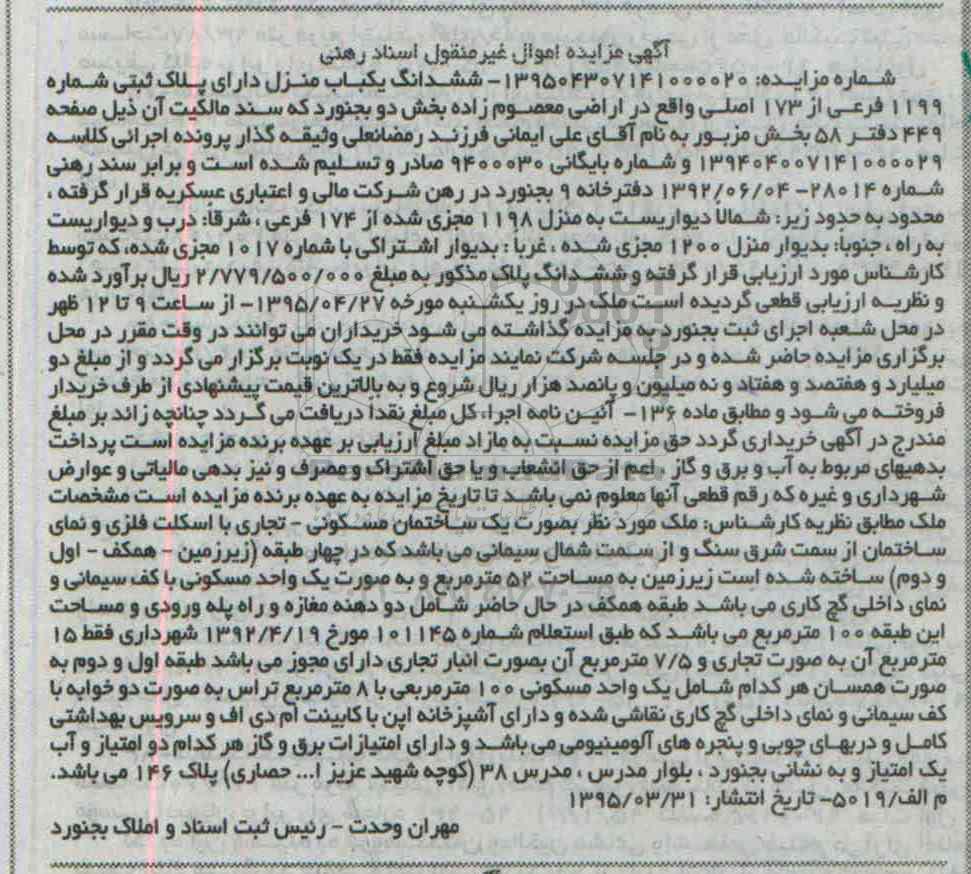 آگهی مزایده اموال غیرمنقول اسناد رهنی
شماره مزایده: ۱۳۹۵۰۴۳۰۷۱۴۱۰۰۰۰۲۰- ششدانگ یکباب منزل دارای پلاک ثبتی شماره
۱۱۹۹ فرعی از ۱۷۳ اصلی واقع در اراضی معصوم زاده بخش دو بجنورد که سند مالکیت آن ذیل صفحه
۴۴۹ دفتر ۵۸ بخش مزبور به نام آقای علی ایمانی فرزند رمضانعلی وثیقه گذار پرونده اجرائی کلاسه
۱۳۹۴۰۴۰۰۷۱۴۱۰۰۰۰۲۹ و شماره بایگانی ۹۴۰۰۰۳۰ صادر و تسلیم شده است و برابر سند رهنی
شماره ۲۸۰۱۴- ۱۳۹۲/۰۶/۰۴ دفترخانه ۹ بجنورد در رهن شرکت مالی و اعتباری عسکریه قرار گرفته ،
محدود به حدود زیر: شمالاً دیواریست به منزل ۱۱۹۸ مجزی شده از ۱۷۴ فرعی ، شرقا: درب و دیواریست
به راه ، جنوباً: بدیوار منزل ۱۲۰۰ مجزی شده ، غرباً : بدیوار اشتراکی با شماره ۱۰۱۷ مجزی شده، که توسط
کارشناس مورد ارزیابی قرار گرفته و ششدانگ پلاک مذکور به مبلغ ۲/۷۷۹/۵۰۰/۰۰۰ ریال برآورد شده
و نظریه ارزیابی قطعی گردیده است ملک در روز یکشنبه مورخه ۱۳۹۵/۰۴/۲۷- از ساعت ۹ تا ۱۲ ظهر
در محل شعبه اجرای ثبت بجنورد به مزایده گذاشته می شود خریداران می توانند در وقت مقرر در محل
برگزاری مزایده حاضر شده و در جلسه شرکت نمایند مزایده فقط در یک نوبت برگزار می گردد و از مبلغ دو
میلیارد و هفتصد و هفتاد و نه میلیون و پانصد هزار ریال شروع و به بالاترین قیمت پیشنهادی از طرف خریدار
فروخته می شود و مطابق ماده ۱۳۶- آئین نامه اجرا، کل مبلغ نقداً دریافت می گردد چنانچه زائد بر مبلغ
مندرج در آگهی خریداری گردد حق مزایده نسبت به مازاد مبلغ ارزیابی بر عهده برنده مزایده است پرداخت
بدهیهای مربوط به آب و برق و گاز ، اعم از حق انشعاب و یا حق اشتراک و مصرف و نیز بدهی مالیاتی و عوارض
شهرداری و غیره که رقم قطعی آنها معلوم نمی باشد تا تاریخ مزایده به عهده برنده مزایده است مشخصات
ملک مطابق نظریه کارشناس: ملک مورد نظر بصورت یک ساختمان مسکونی - تجاری با اسکلت فلزی و نمای
ساختمان از سمت شرق سنگ و از سمت شمال سیمانی می باشد که در چهار طبقه (زیرزمین - همکف - اول
و دوم) ساخته شده است زیرزمین به مساحت ۵۲ مترمربع و به صورت یک واحد مسکونی با کف سیمانی و
نمای داخلی گچ کاری می باشد طبقه همکف در حال حاضر شامل دو دهنه مغازه و راه پله ورودی و مساحت
این طبقه ۱۰۰ مترمربع می باشد که طبق استعلام شماره ۱۰۱۱۴۵ مورخ ۱۳۹۲/۴/۱۹ شهرداری فقط ۱۵
مترمربع آن به صورت تجاری و ۷/۵ مترمربع آن بصورت انبار تجاری دارای مجوز می باشد طبقه اول و دوم به
صورت همسان هر کدام شامل یک واحد مسکونی ۱۰۰ مترمربعی با ۸ مترمربع تراس به صورت دو خوابه با
کف سیمانی و نمای داخلی گچ کاری نقاشی شده و دارای آشپزخانه اپن با کابینت ام دی اف و سرویس بهداشتی
کامل و دربهای چوبی و پنجره های آلومینیومی می باشد و دارای امتیازات برق و گاز هر کدام دو امتیاز و آب
یک امتیاز و به نشانی بجنورد ، بلوار مدرس ، مدرس ۳۸ (کوچه شهید عزیز ا... حصاری) پلاک ۱۴۶ می باشد.
م الف/۵۰۱۹- تاریخ انتشار: ۱۳۹۵/۰۳/۳۱
مهران وحدت - رئیس ثبت اسناد و املاک بجنورد